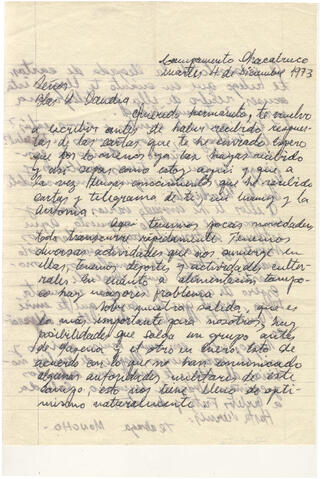 Campamento Chacabuco
martes 4 de Diciembre 1973
Señor
Querido hermanito, te vuelvo
a escribir antes de haber recibido respues-
tas de las cartas que te he enviado espero
que por lo menos ya las hayas recibido
y así sepas como estoy aquí y que a
la vez tienes conocimiento que he recibido
cartas y telegrama de ti, mi mamy y la
Antonia.
Aquí tenemos pocas novedades,
todo transcurre rápidamente tenemos
diversas actividades que nos
ellas, tenemos deportes y actividades cultu-
rales en cuanto a alimentación tampo-
co hay mayores problemas.
Sobre nuestra salida, que es
lo más importante para nosotros, hay
posibilidades que salga un grupo antes
de pascua y el otro en enero, esto de
acuerdo con lo que nos han comunicado
algunas autoridades militares de este
campo, esto nos tiene lleno de opti-
mismo naturalmente.